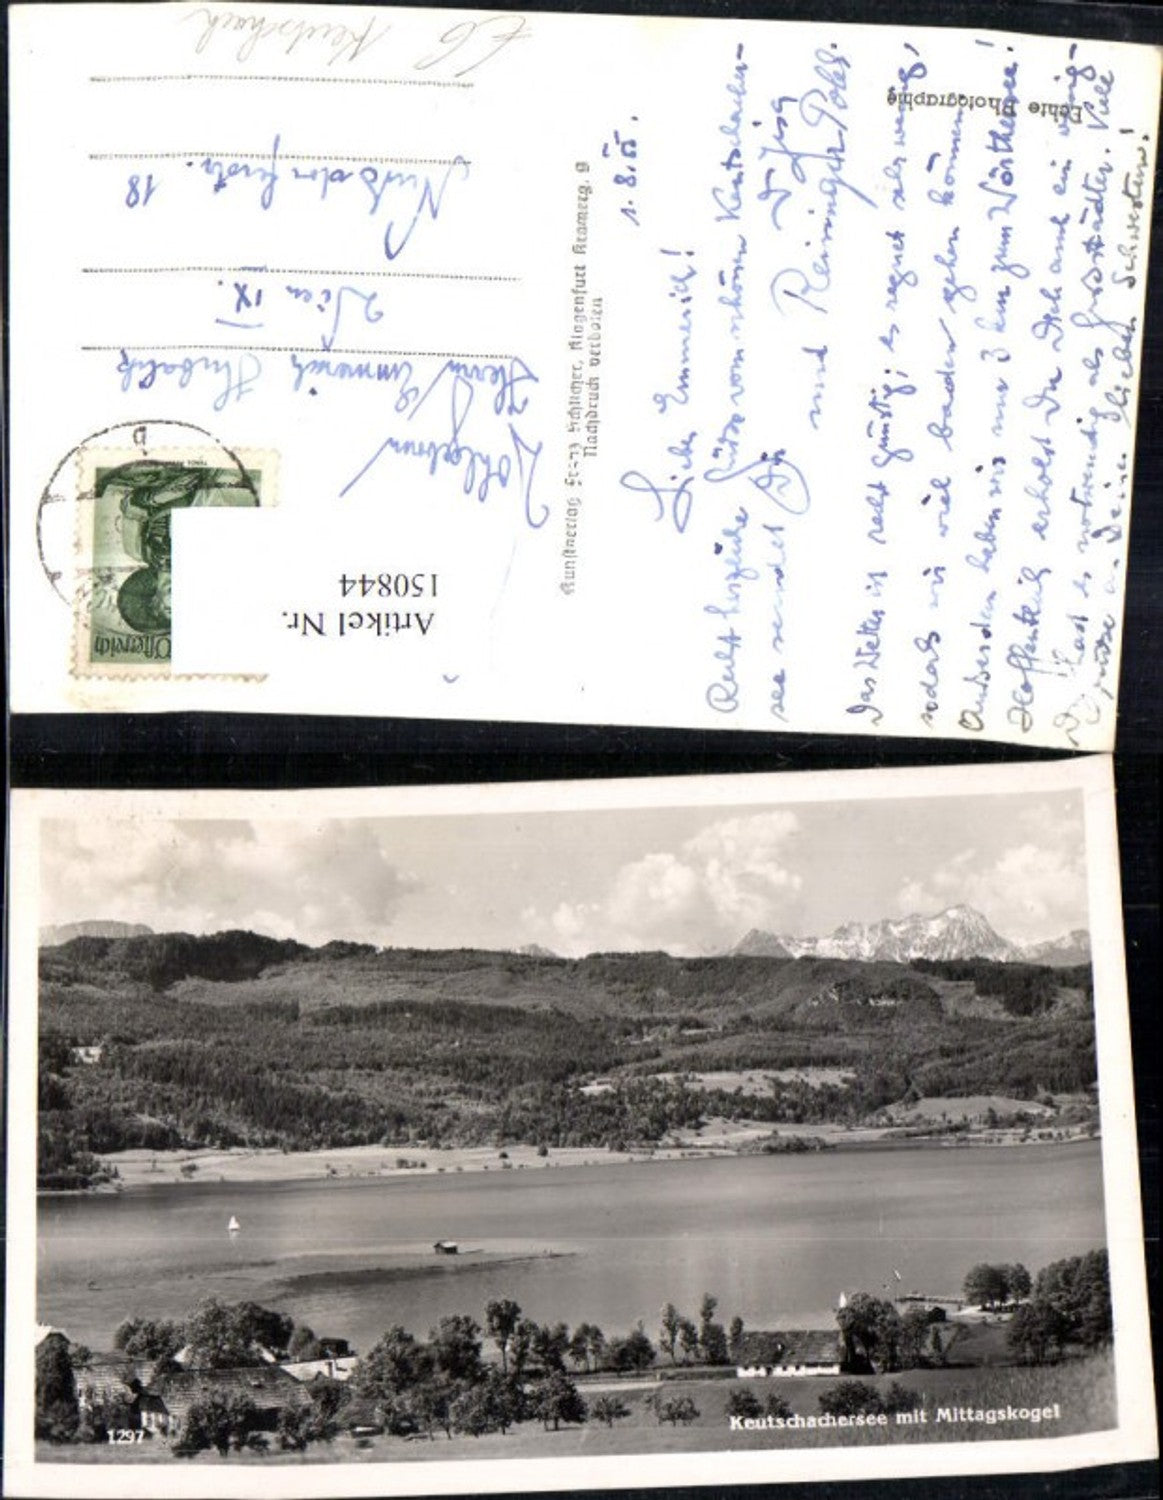 Kunstverlag Franz Schilcher, Klagenfurt Krameerg. 9
Nachdruck verboten
Echte Photographie
Artikel Nr.
150844
Österreich
Wohlgeboren
Herrn Emmerich
Wien IX.
Nussdorferstr. 18
Keutschach
1. 8. 55.
Lieber Emmerich!
Recht herzliche Grüsse vom schönen Keutschacher-
see sendet Dir
und
Das Wetter ist nicht günstig; es regnet sehr wenig,
sodass wir viel baden gehen können.
Ausserdem haben wir nur 3 km zum Wörthersee!
Hoffentlich erholst Du Dich auch ein wenig-
Du hast es notwendig als Großstädter. Viele
Grüsse an Deine lieben Schwestern!
1297
Keutschachersee mit Mittagskogel